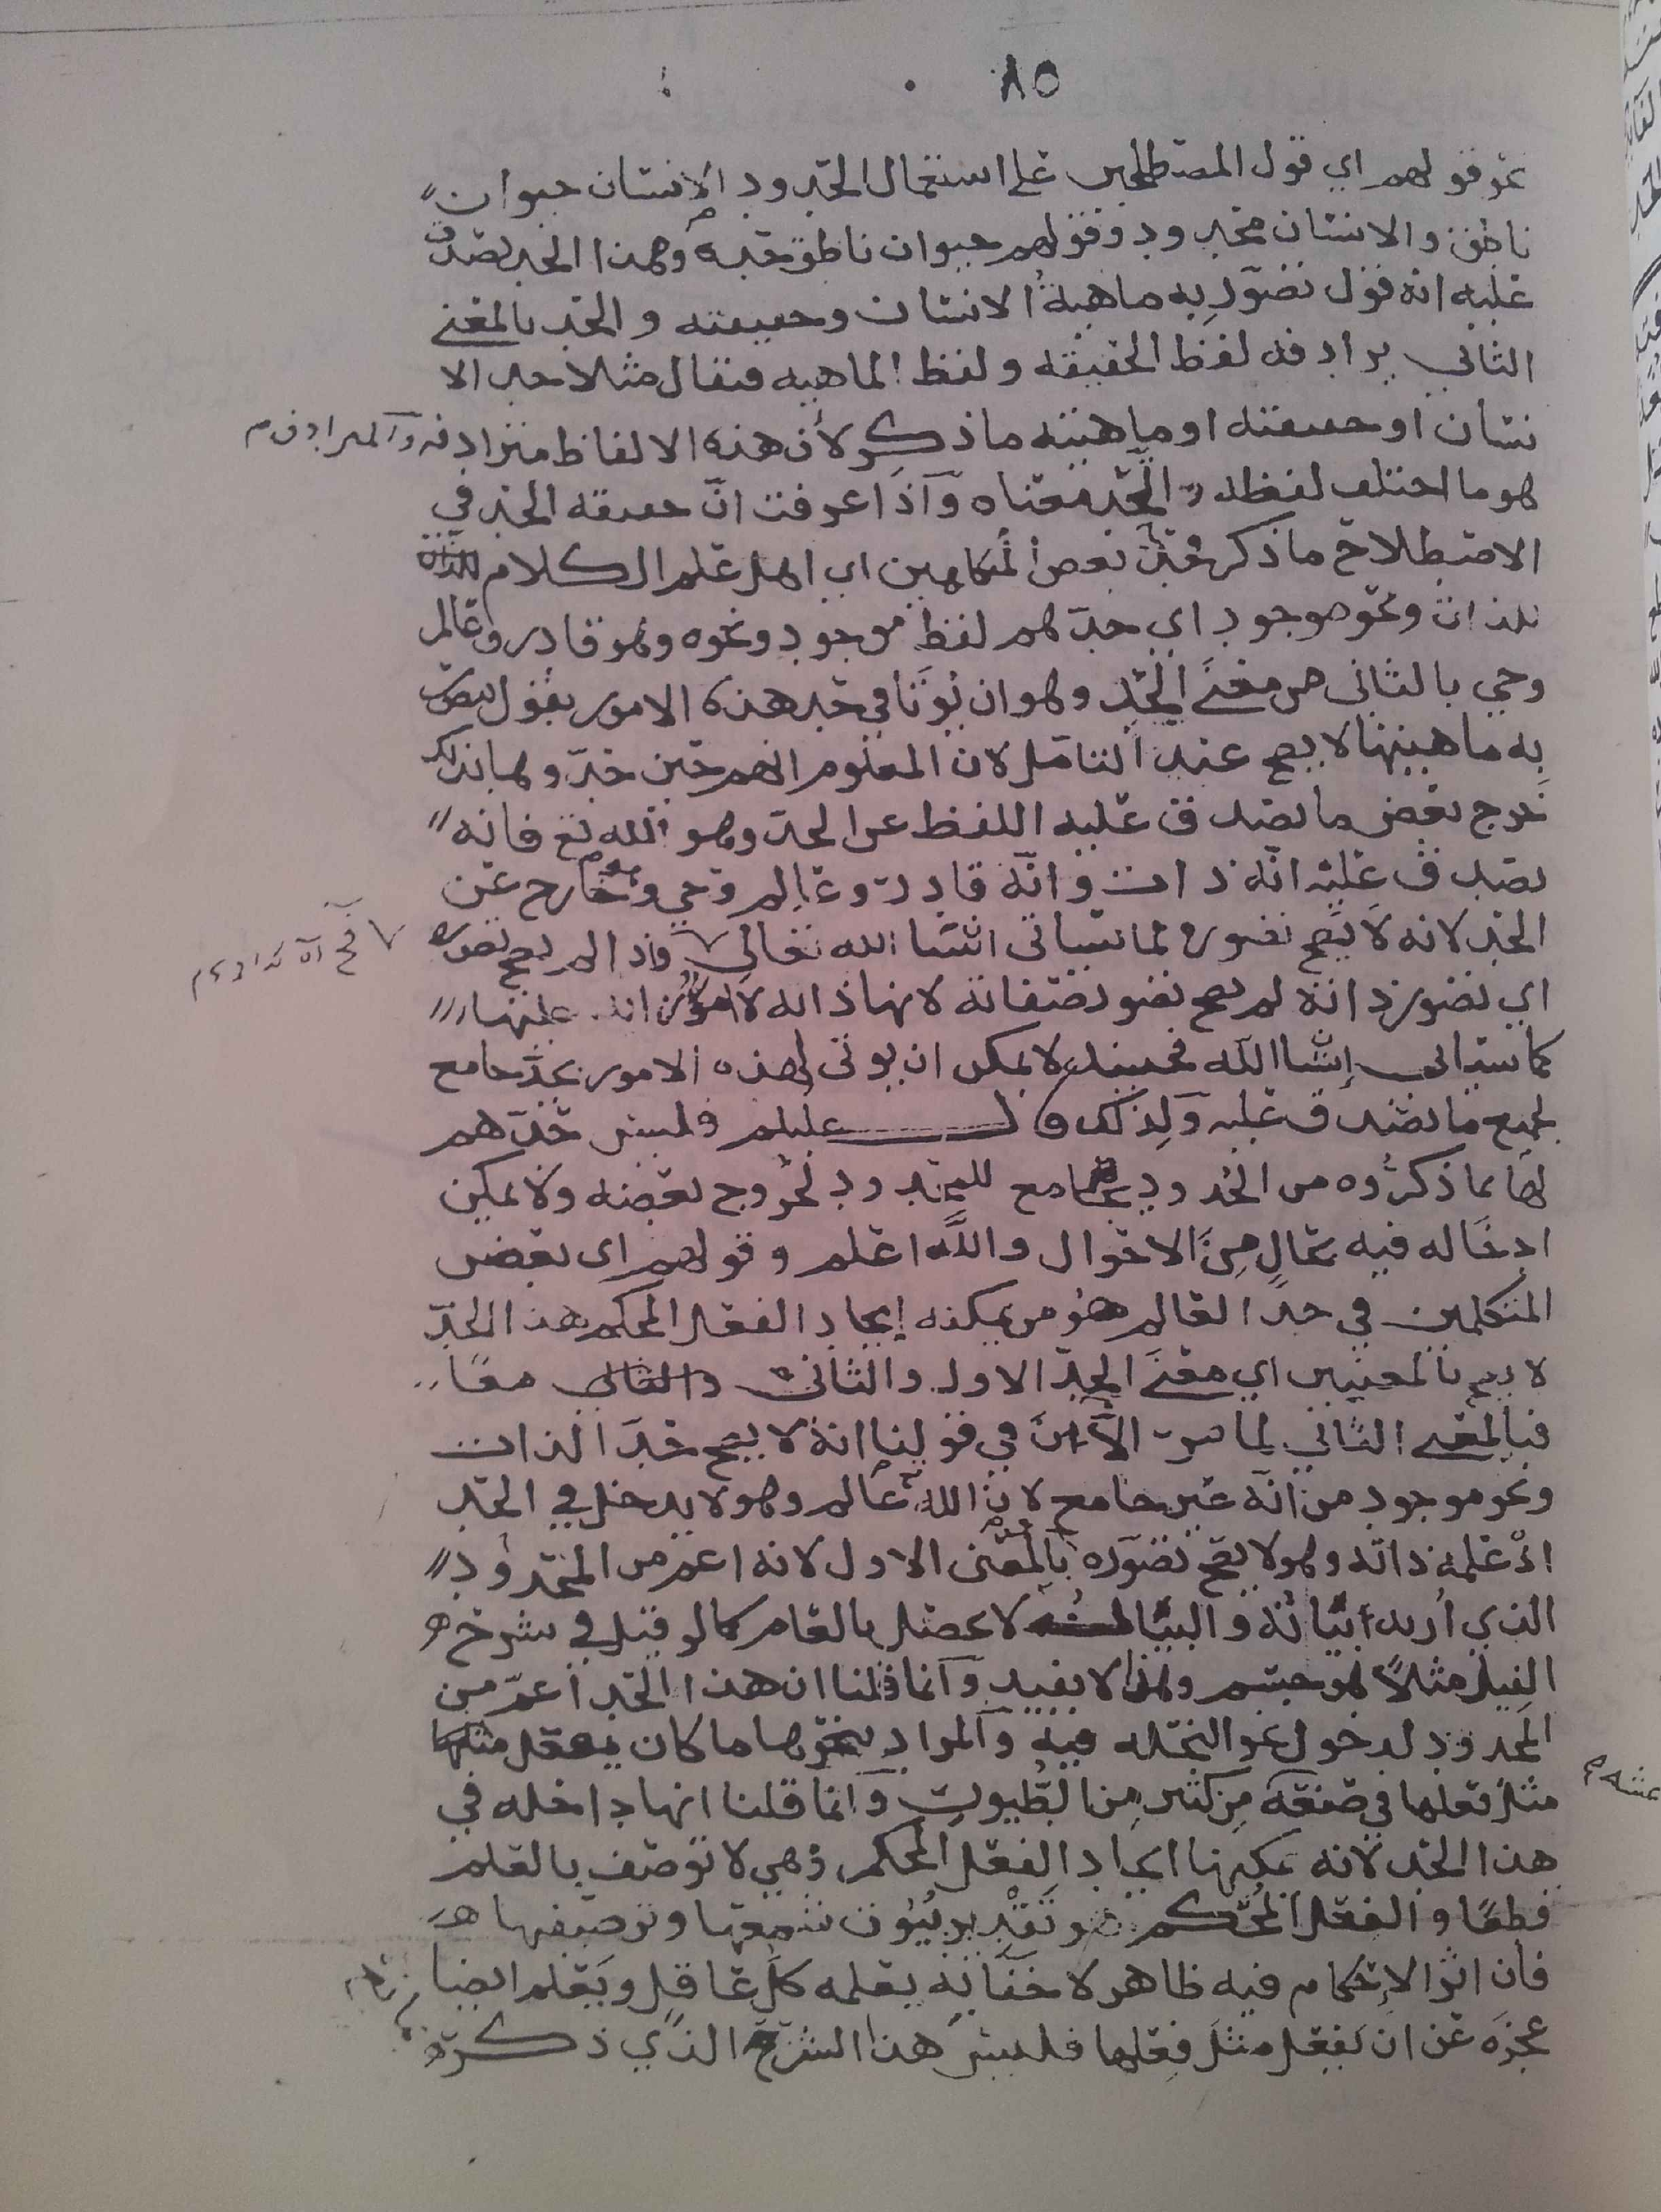 ٨٥
نحو قولهم اي قول المصطلحين على استعمال الحدود الانسان حيوان
ناطق والانسان محدود وقولهم حيوان ناطق حد وهذا الحد يصدق
عليه انه قول تصور به ماهية الانسان وحقيقته والحد بالمعنى
الثاني يرادفه لفظ الحقيقه ولفظ الماهيه فيقال مثلا حد الا
نسان او حقيقته او ماهيته ما ذكر لأن هذه الالفاظ مترادفه والمترادف
هو ما اختلف لفظه واتحد معناه وَاذا عرفت انّ حقيقه الحد في
الاصطلاح ما ذكر فحد بعض المتكلمين اي اهل علم الكلام
للذات ونحو موجود اي حدّهم لفظ موجود ونحوه وهو قادر وعالم
وحي بالثاني من معنَى الحد وهو ان يؤتا في حد هذه الامور بقول يتصور
به ماهيتها لا يصح عند التامل لان المعلوم انهم حين حدّوها بذلك
خرج بعض ما يصدق عليه اللفظ عن الحد وهو الله تع فانه
يصدق عليه انّه ذات وانّه قادر وعالم وحي وهو خارج عن
الحد لانه لا يصح تصوره لما سياتي انشا الله تعالى واذا لم يصح تصوره
اي تصور ذاته لم يصح تصور صفاته لانها ذاته لا امور زائده عليها
كما سياتي إنشا الله فحينئذٍ لا يمكن ان يوتى لهذه الامور بحدّ جامع
لجميع ما يصدق عليه وَلِذلك قال عليلم فليس حدّهم
لها بما ذكرُوه من الحدود بجامع للمحدود لخروج بعضه ولا يمكن
ادخاله فيه بحالٍ مِنَ الاحوال واللَّه اعلم وقولهم اي بعض
المتكلمين في حدّ العالم هو من يمكنه إيجاد الفعل المحكم هذا الحدّ
لا يصح بالمعنيين اي معنَى الحدّ الاول والثاني معًا
فبالمعنى الثاني لما مرّ الآن في قولنا انه لا يصح حدّ الذات
ونحو موجود من انّه غير جامع لان الله عالم وهو لا يدخل في الحد
اذْ علمه ذاته وهو لا يصح تصوّره وبالمعنى الاول لانه اعم من المحدود
الذي أُريد بيانه والبيان لا يحصل بالعام كما لو قيل في شرح
الفيل مثلاً هو جسم وهذا لا يفيد وَانما قلنا ان هذا الحد اعمّ من
المحدود لدخول نحو النحله فيه وَالمراد بنحوها ما كان يفعل مثلها
مثل فعلها في صنعة مِن كثير مِن الطُيور وَانما قلنا انها داخله في
هذا الحد لانه يمكنها ايجاد الفعل المحكم وهي لا توصف بالعلم
قطعًا والفعل المُحكم هو تَقْدير بُيُوت شمعها وترصيفها
فان اثر الإحكام فيه ظاهر لا خفا به يعلمه كلّ عاقل ويَعلم ايضا
عجزَه عن ان يَفعل مثلَ فِعلها فليس هذا الشرح الذي ذكره